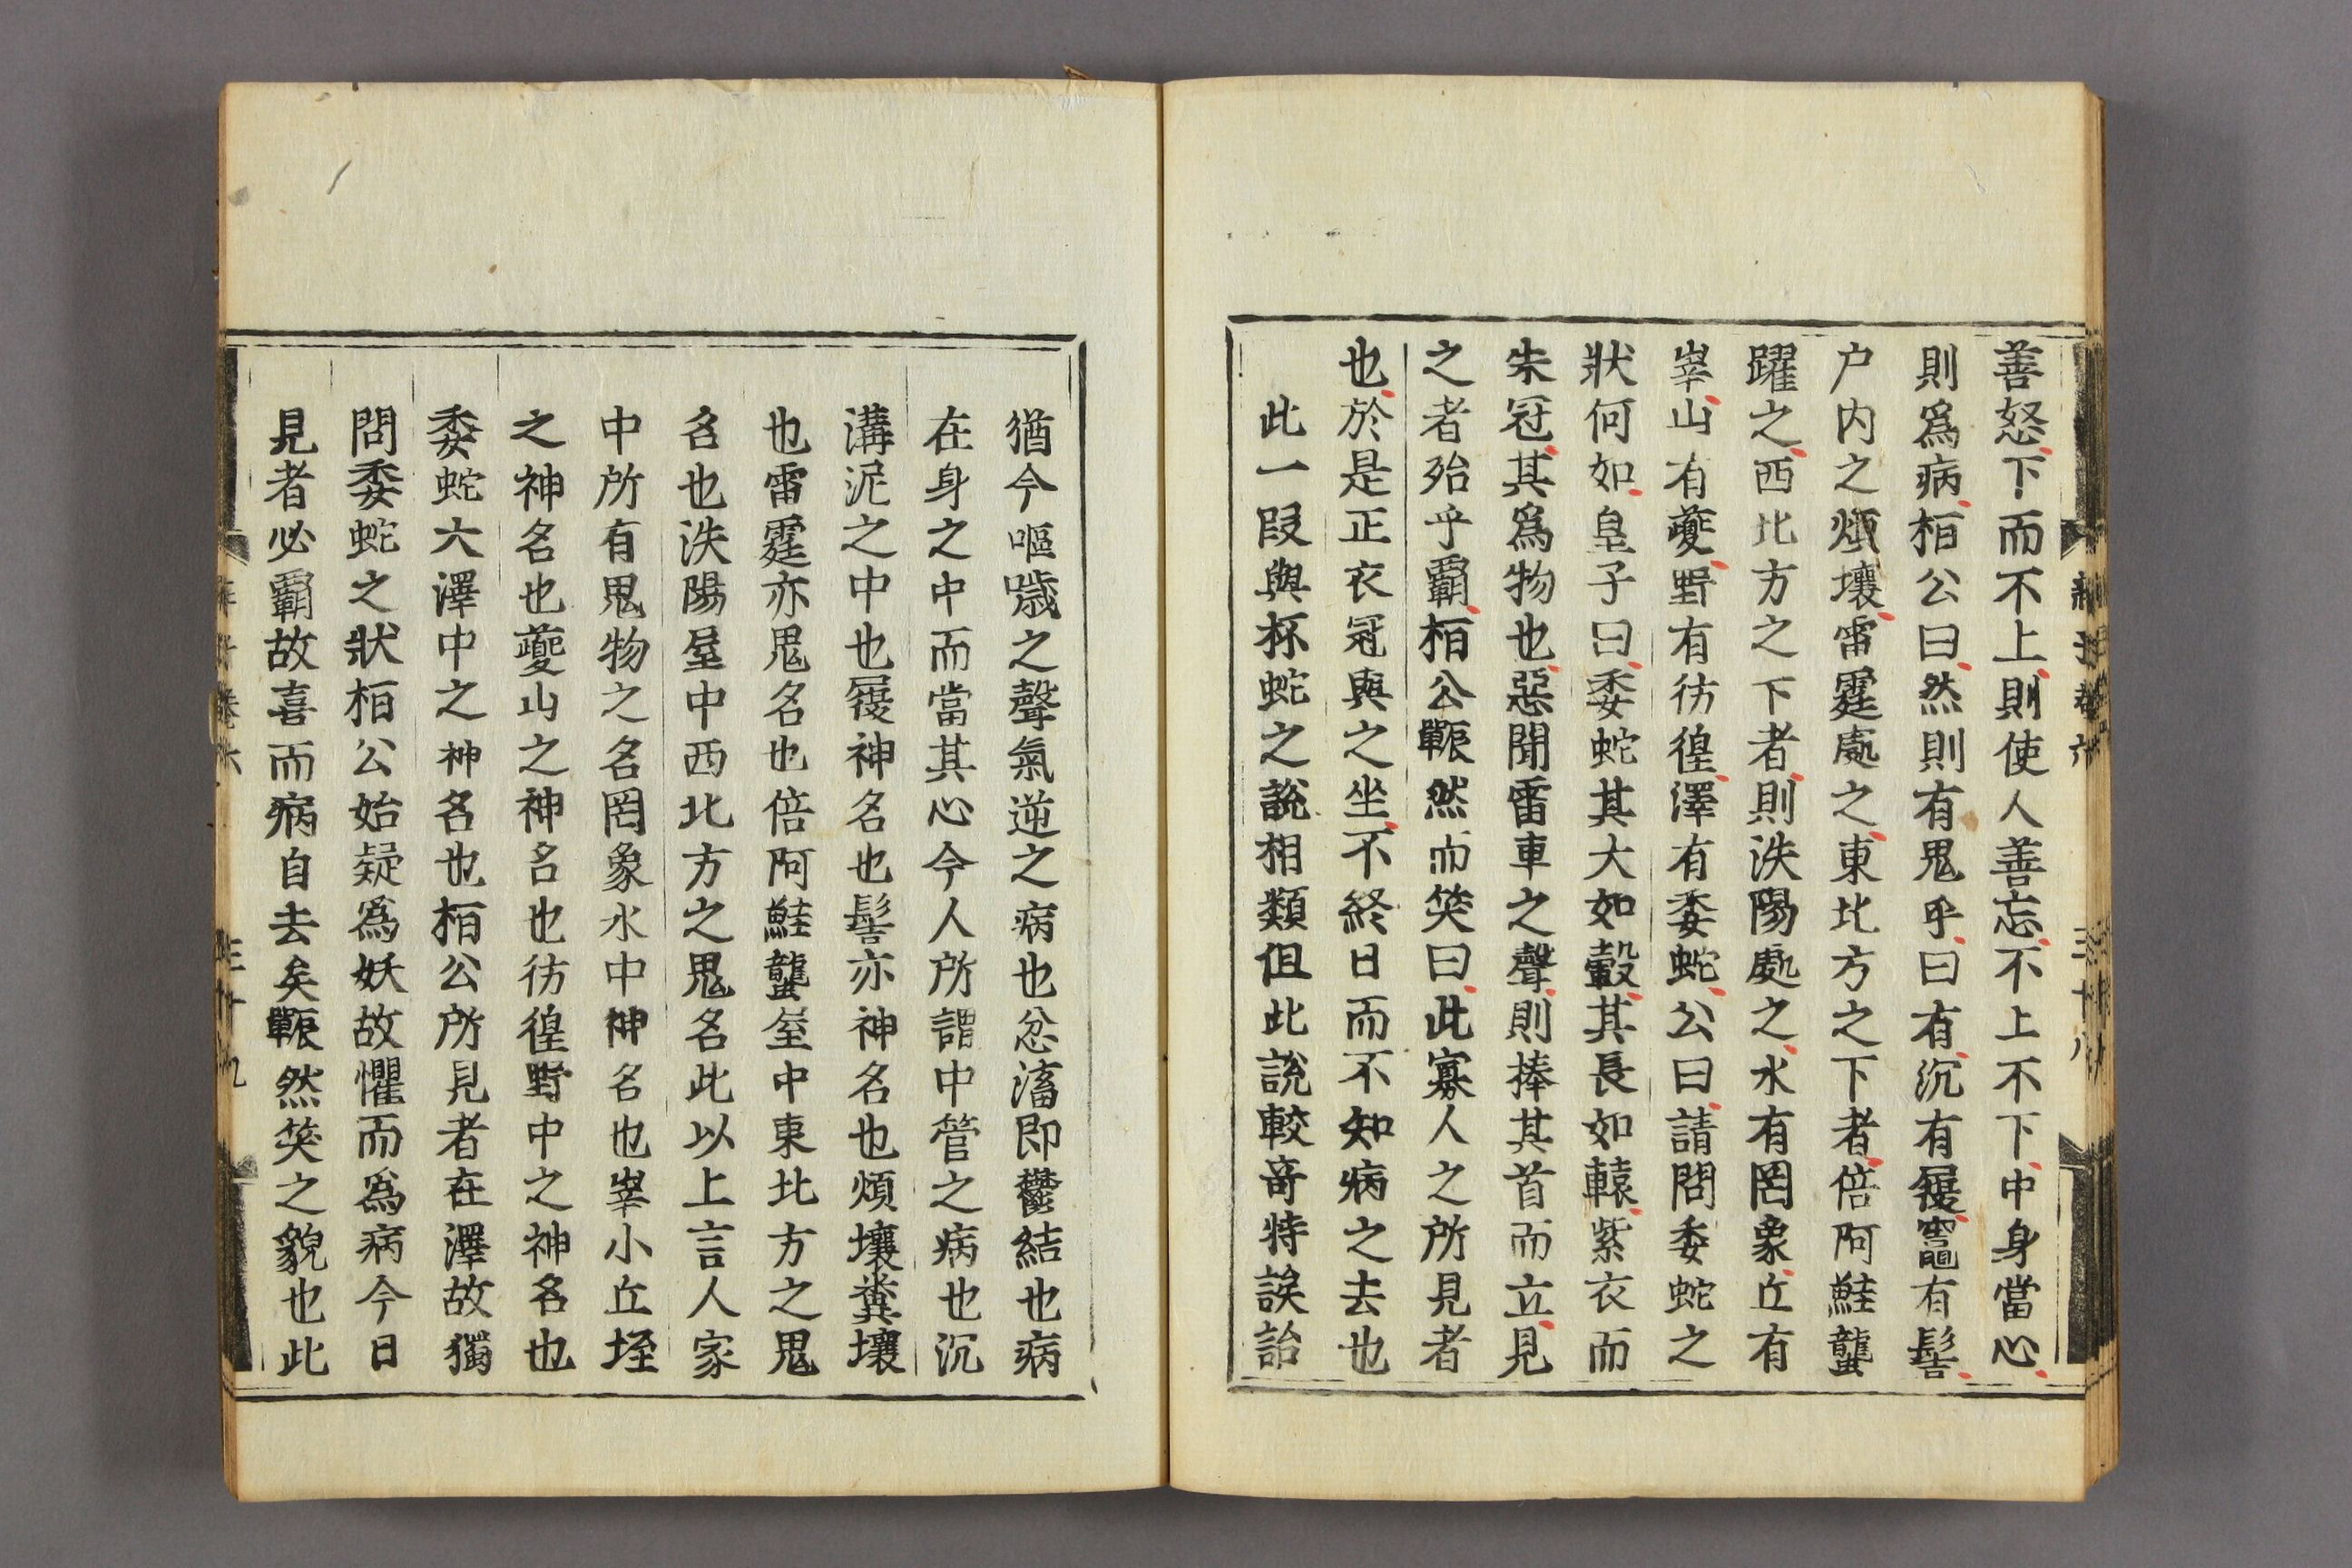 善怒下而不上則使人善忘不上不下中身當心
則爲病桓公曰然則有鬼乎曰有沉有履竈有髻
户内之煩壤雷霆處之東北方之下者倍阿鮭蠪
躍之西北方之下者則泆陽處之水有罔象丘有
峷山有夔野有彷徨澤有委蛇公曰請問委蛇之
狀何如皇子曰委蛇其大如轂其長如轅紫衣而
朱冠其爲物也惡聞雷車之聲則捧其首而立見
之者殆乎霸桓公辴然而笑曰此寡人之所見者
也於是正衣冠與之坐不終日而不知病之去也
此一段與杯蛇之說相類但此說較竒特誒詒
猶今嘔噦之聲氣逆之病也忿滀即鬱結也病
在身之中而當其心今人所謂中管之病也沉
溝泥之中也履神名也髻亦神名也煩壤糞壤
也雷霆亦鬼名也倍阿鮭蠪屋中東北方之鬼
名也泆陽屋中西北方之鬼名此以上言人家
中所有鬼物之名罔象水中神名也峷小丘垤
之神名也夔山之神名也彷徨野中之神名也
委蛇大澤中之神名也桓公所見者在澤故獨
問委蛇之狀桓公始疑爲妖故懼而爲病今日
見者必霸故喜而病自去矣辴然笑之貌也此